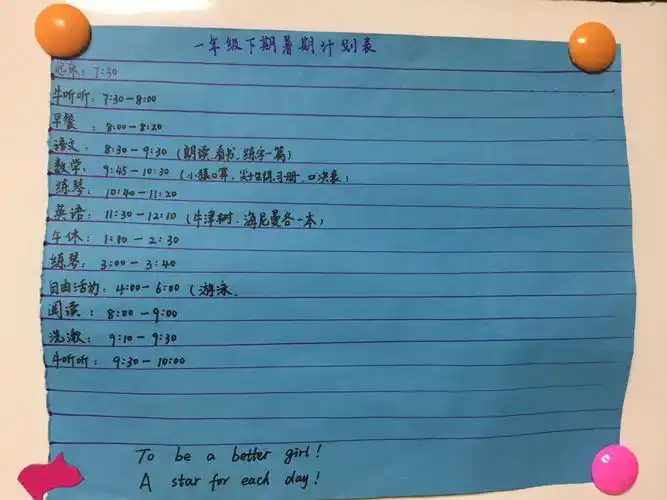 一年级下期暑期计划表
起床: 7:30
牛听听: 7:30-8:00
早餐: 8:00-8:20
语文: 8:30-9:30 (朗读.看书.练字一篇)
数学: 9:45-10:30 (小猿口算. 练习册. 口决表)
练琴: 10:40-11:20
英语: 11:30-12:10 (牛津树. 海尼曼各一本)
午休: 1:00-2:30
练琴: 3:00-3:40
自由活动: 4:00-6:00 (游泳.
阅读: 8:00-9:00
洗漱: 9:10-9:30
牛听听: 9:30-10:00
To be a better girl!
A star for each day!